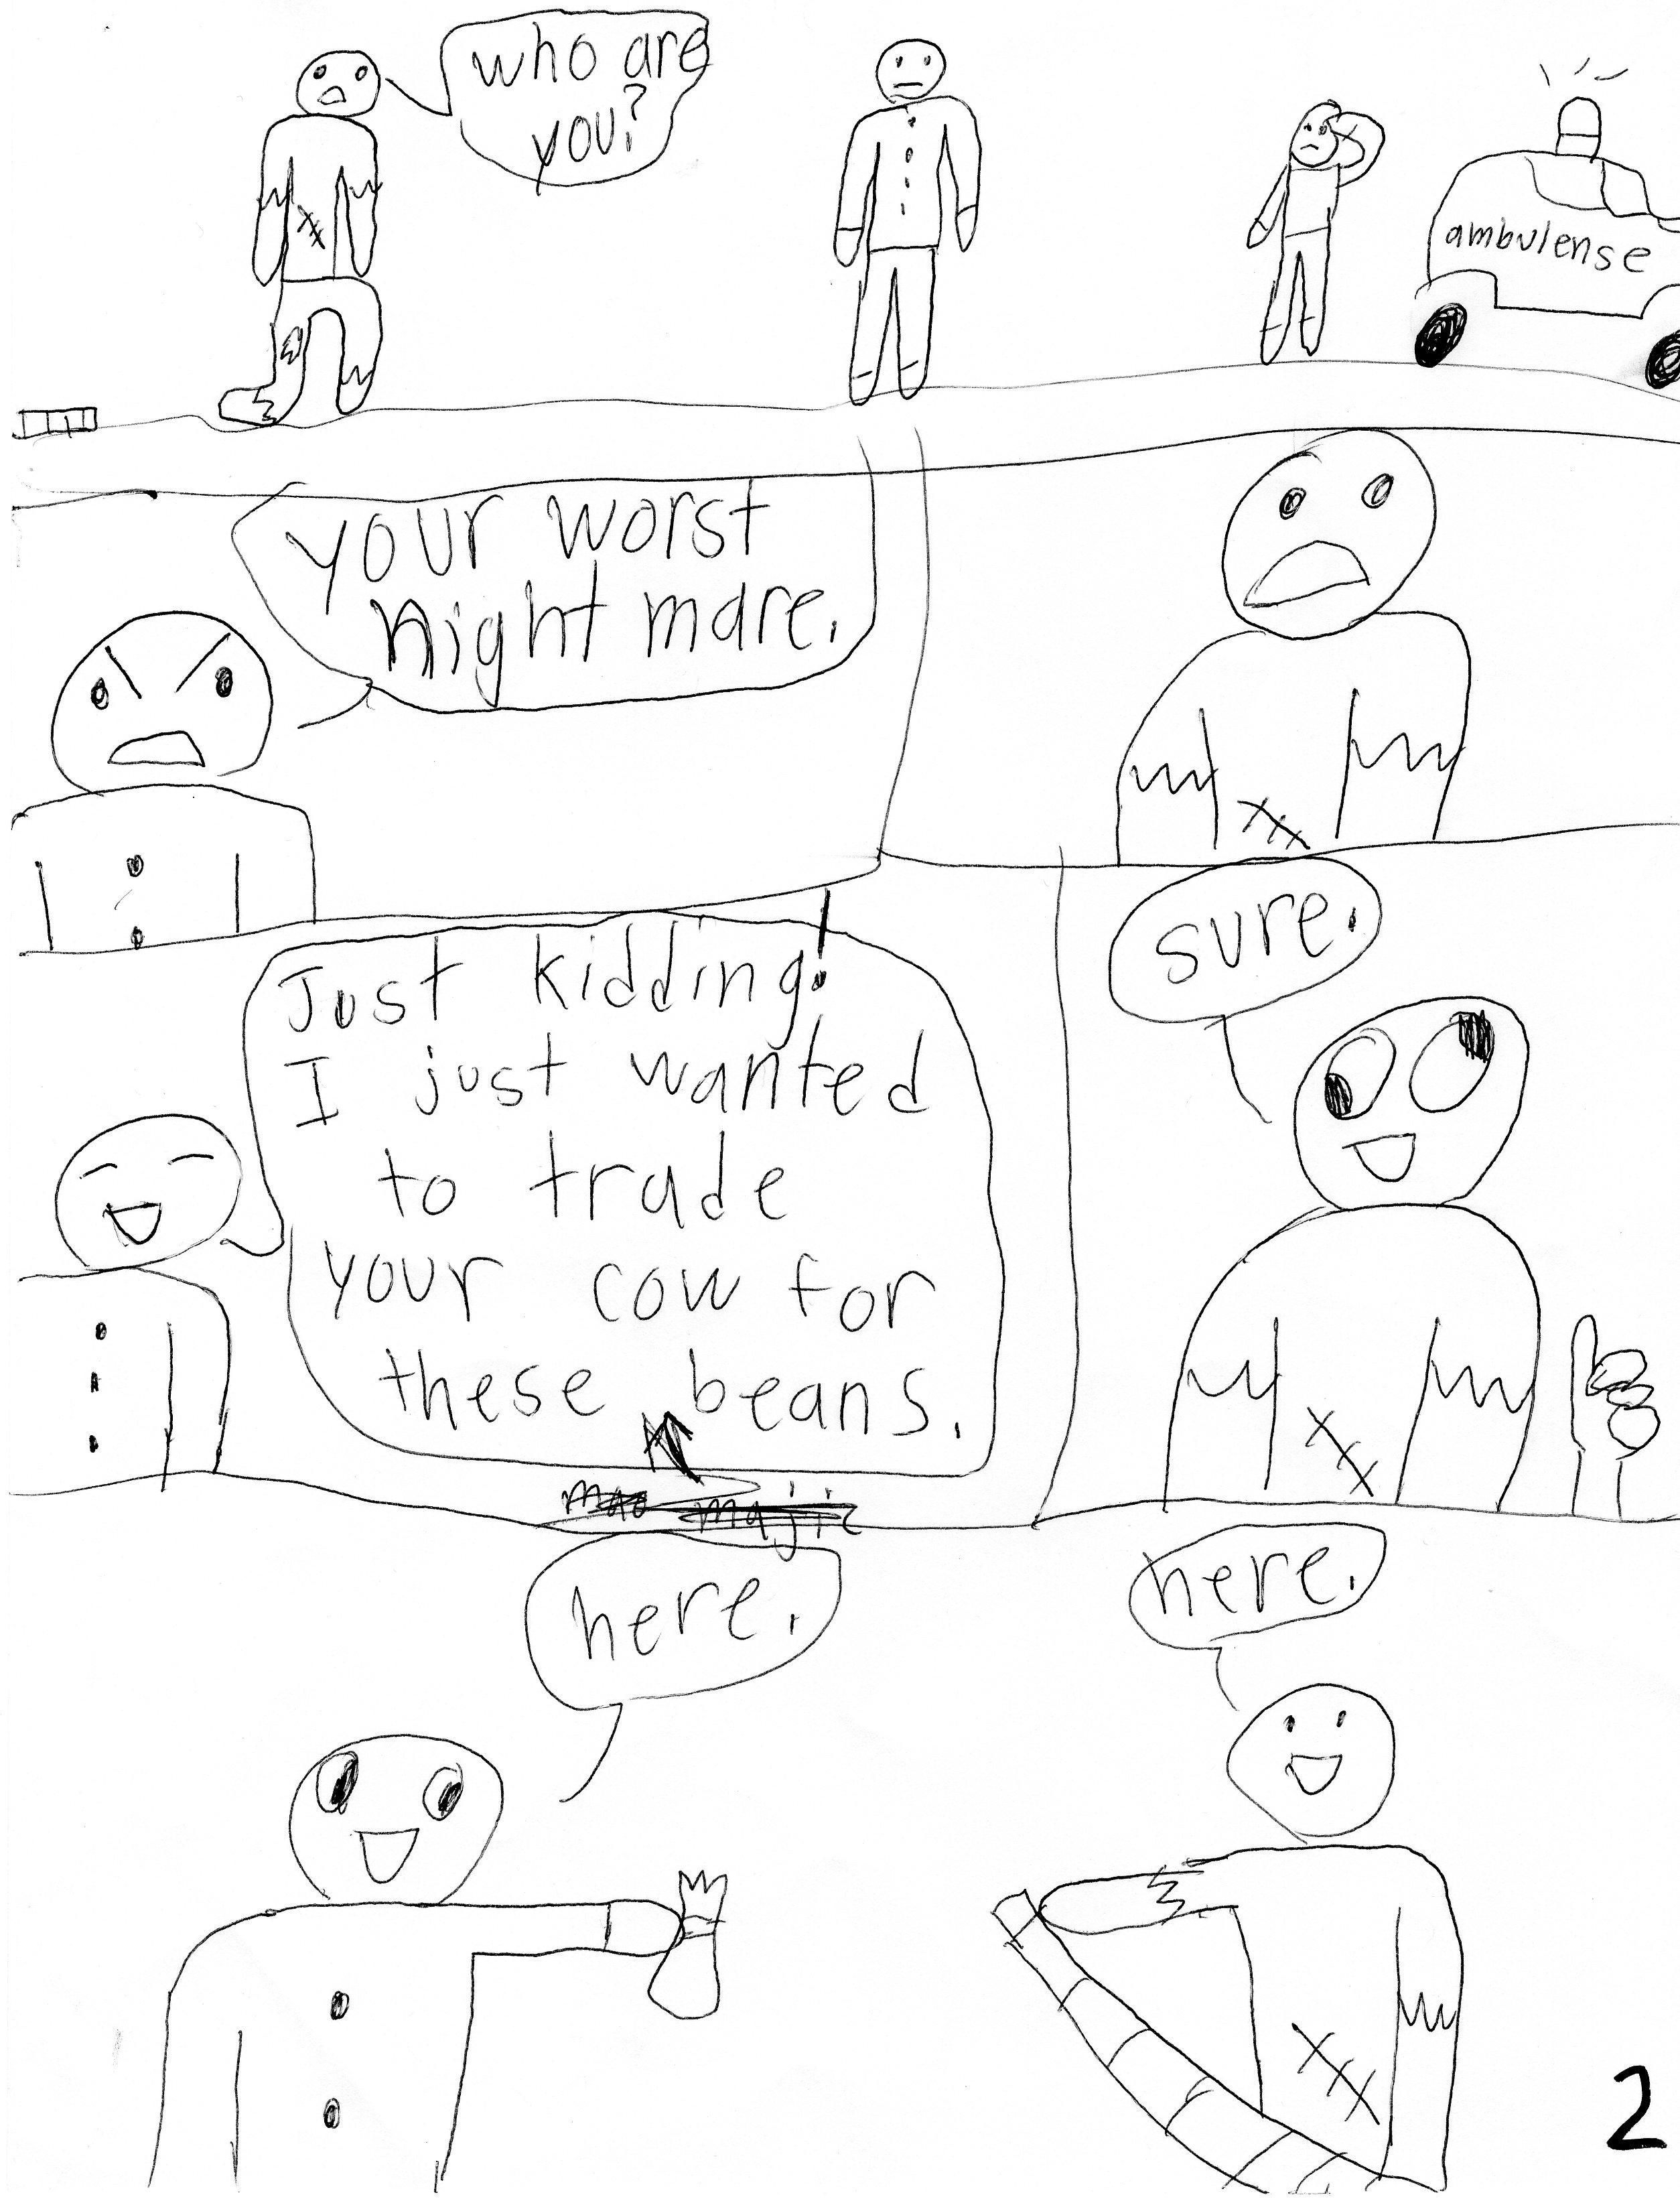 who are
you?
ambulense
your worst
night mare.
Just kidding!
I just wanted
to trade
your cow for
these beans.
majic
sure.
here.
here.
2